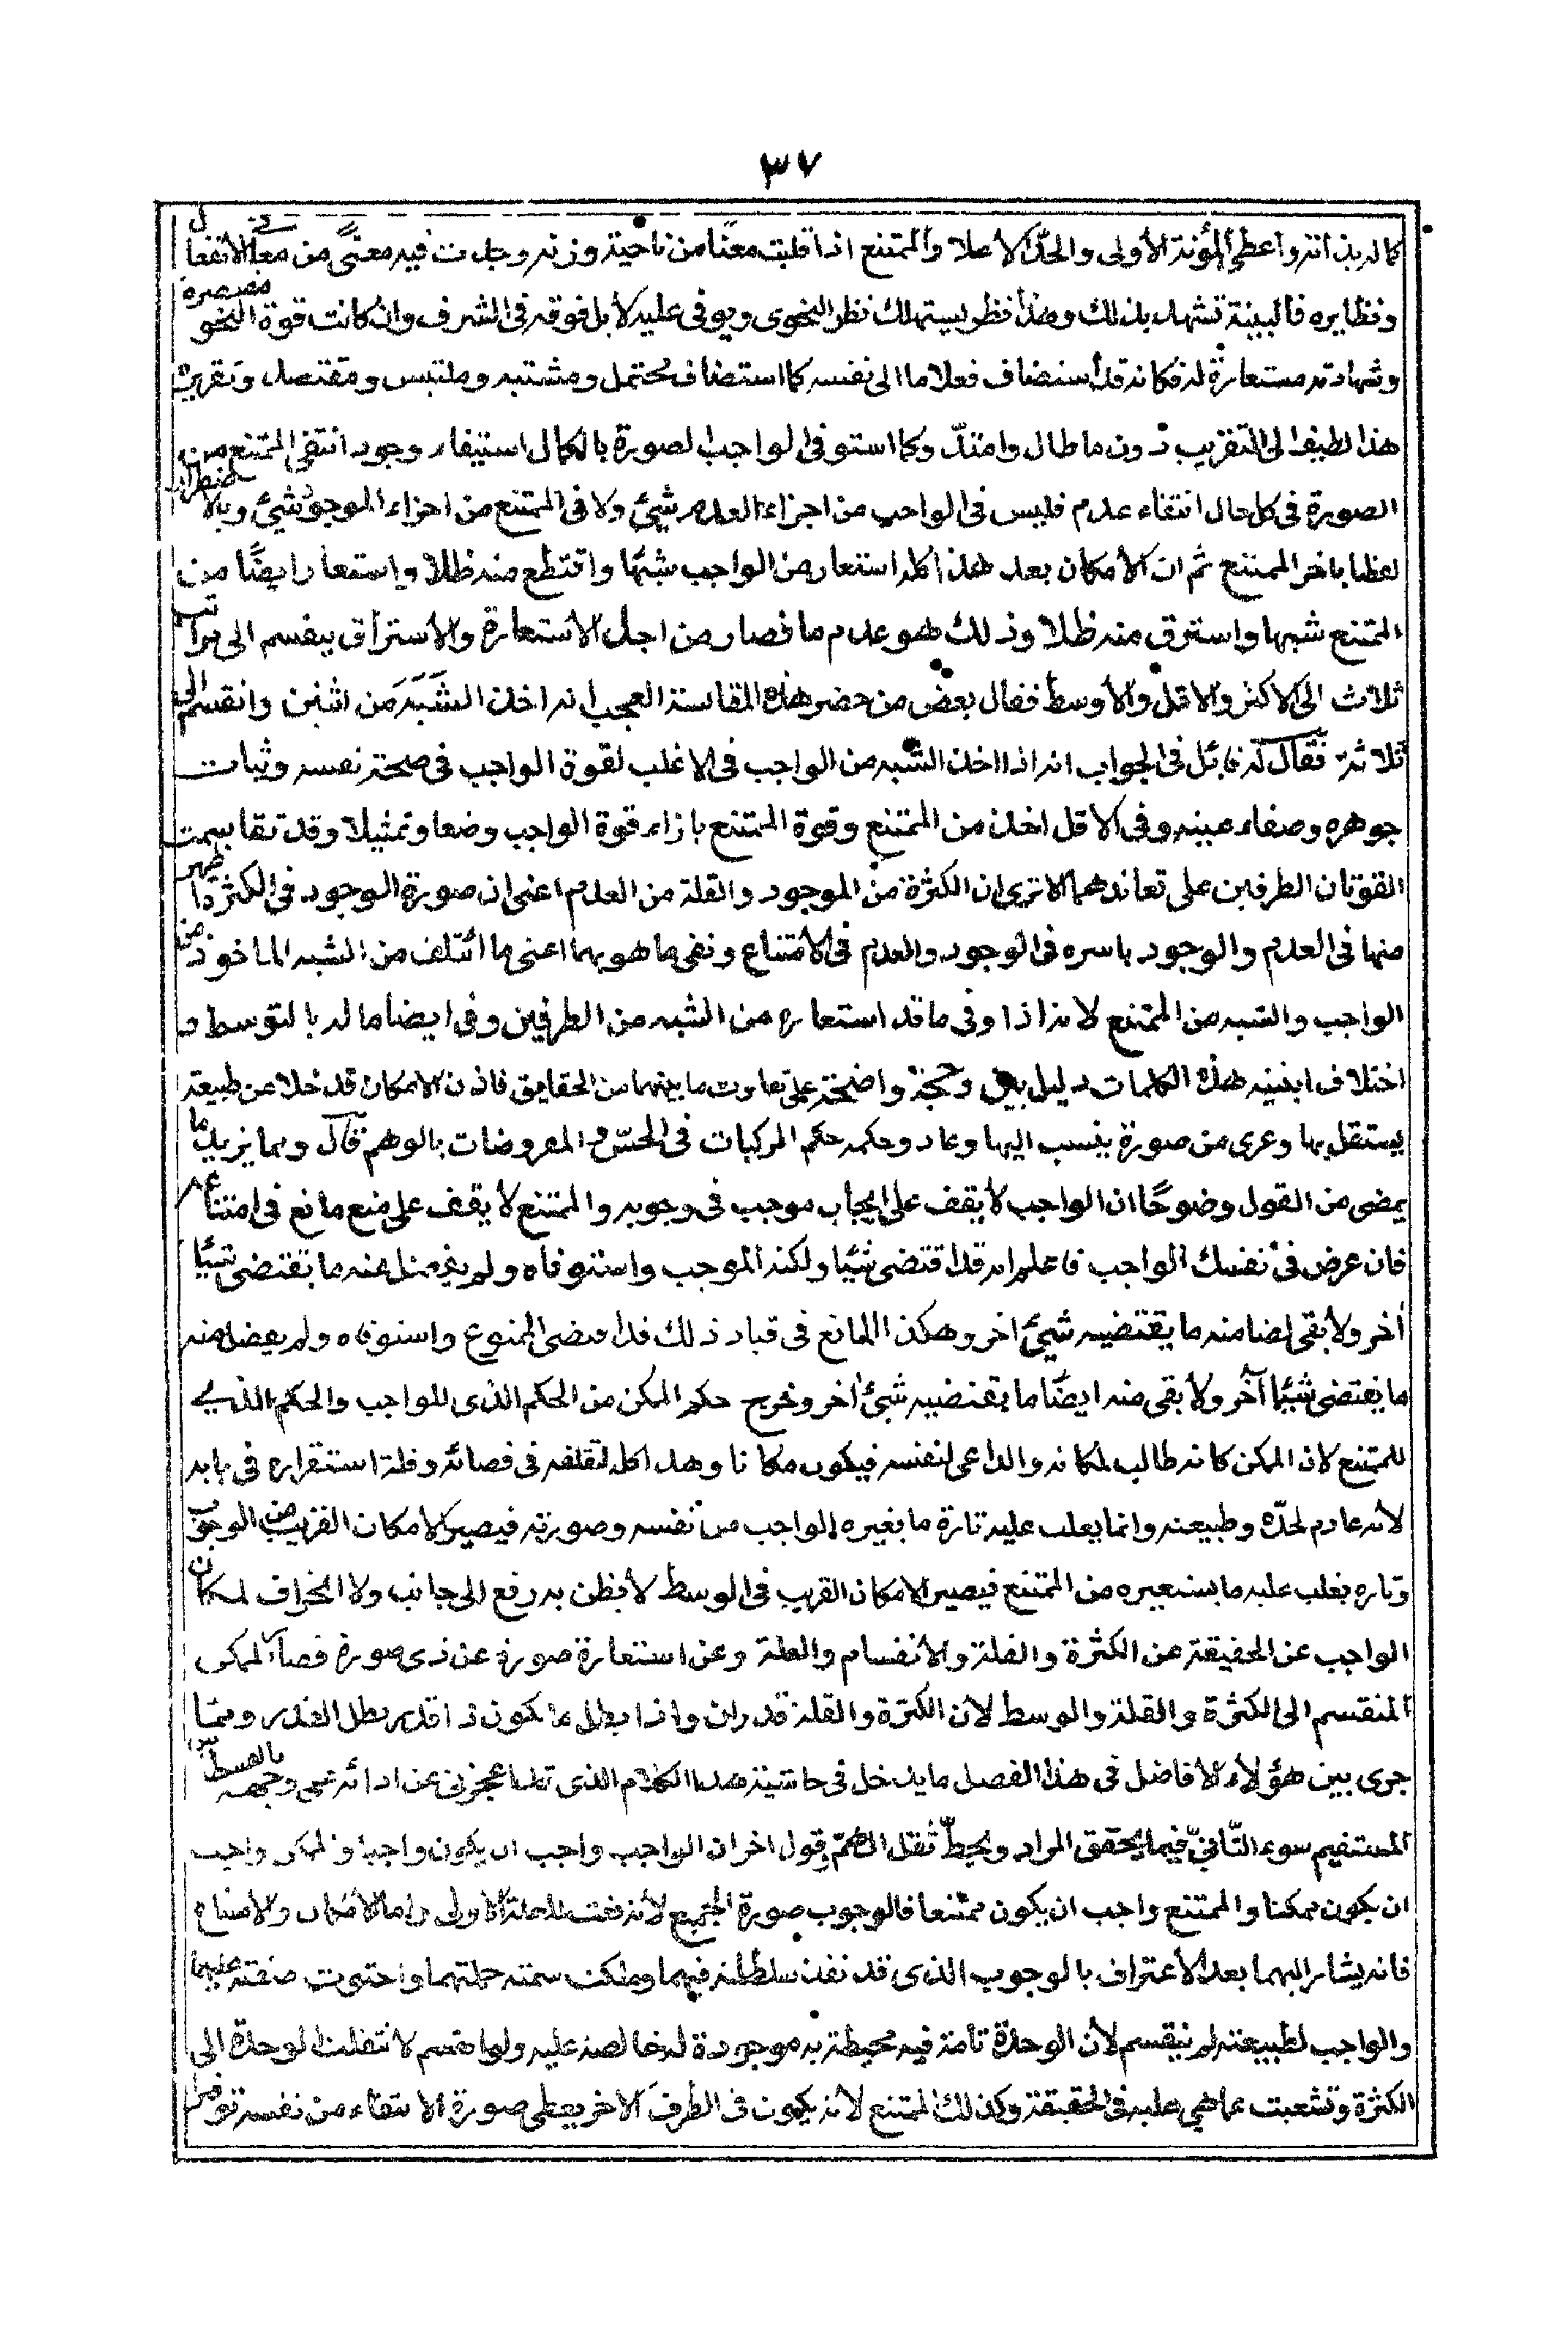 ٣٧
كماله بذاته واعطى المؤنة الأولى والحد الأعلا والممتنع اذا قلبت معنا من ناحية وزنه وجدت فيه معنى من معانى الأنفعال
ونظايره فالبينة تشهد بذلك وهذا نظر يستهلك نظر النحوى ويوفى عليه لا بل فوقه فى الشرف وان كانت قوة النحو مقصرة
وشهادته مستعارة له فكانه قد استضاف فعلا ما الى نفسه كما استضاف محتمل ومشتبه وملتبس ومقتصد وتقريب
هذا لطيف الى التقريب دون ما طال وامتد وكما استوفى الواجب الصورة بالكمال استيفاء وجود انتفى الممتنع من
الصورة فى كل حال انتفاء عدم فليس فى الواجب من اجزاء العدم شيئ ولا فى الممتنع من اجزاء الموجود شيئ وبالاضطرار
لفظنا باخر الممتنع ثم ان الأمكان بعد هذا كله استعار من الواجب شبها واقتطع منه ظللا واستعار ايضًا من
الممتنع شبها واسترق منه ظلا وذلك هو عدم ما فصار من اجل الاستعارة والاستراق ينقسم الى مراتب
ثلاث الى الاكثر والاقل والأوسط فقال بعض من حضر هذه المقابسة العجيب انه اخذ الشبه من اثنين وانقسم الى
ثلاثة فقال له قائل فى الجواب انه اذا اخذ الشبه من الواجب فى الاغلب لقوة الواجب فى صحة نفسه وثبات
جوهره وصفاء عينه وفى الاقل اخذ من الممتنع وقوة الممتنع بازاء قوة الواجب وضعا وتمثيلا وقد تقاسمت
القوتان الطرفين على تعاندهما الا ترى ان الكثرة من الموجود والقلة من العدم اعنى ان صورة الوجود فى الكثرة اظهر
منها فى العدم والوجود باسره فى الوجود والعدم فى الامتناع ونفى ما هو بهما اعنى ما ائتلف من الشبه الماخوذ من
الواجب والشبه من الممتنع لانه اذا وفى ما قد استعاره من الشبه من الطرفين وفى ايضا ما له بالتوسط و
اختلاف ابنية هذه الكلمات دليل بين وحجة واضحة على تفاوت ما بينهما من الحقايق فاذن الامكان قد خلا عن طبيعة
يستقل بها وعرى من صورة ينسب اليها وعاد وحكمه حكم المركبات فى الحس والمفروضات بالوهم قال ومما يزيد ما
يمضى من القول وضوحًا ان الواجب لا يقف على ايجاب موجب فى وجوبه والممتنع لا يقف على منع مانع فى امتناعه
فان عرض فى نفسك الواجب فاعلم انه قد اقتضى شيئا ولكنه الموجب واستوفاه ولم يفضل عنه ما يقتضى شيئا
آخر ولا بقى ايضا منه ما يقتضيه شيئ اخر وهكذا المانع فى قياد ذلك قد اقتضى الممنوع واستوفاه ولم يفضل منه
ما يقتضى شيئا آخر ولا بقى منه ايضًا ما يقتضيه شيئ اخر وخرج حكم الممكن من الحكم الذى للواجب والحكم الذى
للممتنع لان الممكن كانه طالب لمكانه والداعى لنفسه فيكون مكانا وهذا كله لتقلقه فى فصائه وقلة استقراره فى بابه
لأنه عادم لحدّه وطبيعته وانما يغلب عليه تارة ما يغيره الواجب من نفسه وصورته فيصير الامكان القريب من الوجوب
وتاره يغلب عليه ما يستعيره من الممتنع فيصير الامكان القريب فى الوسط لا يظن به رفع الى جانب ولا انحراف لمكان
الواجب عن الحقيقة عن الكثرة والقلة والانقسام والعلة وعن استعارة صورة عن ذى صورة فصار الممكن
المنقسم الى الكثرة والقلة والوسط لان الكثرة والقلة قدران واذا بطل ما يكون ذا قدر بطل القدر ومما
جرى بين هؤلاء الافاضل فى هذا الفصل ما يدخل فى حاشية هذا الكلام الذى عجزنى عن ادائه عى وجهه بالقسط
المستقيم سوء التأنى فيما يحقق المراد ويحط ثقل الهم قول اخر ان الواجب واجب ان يكون واجبا والممكن واجب
ان يكون ممكنا والممتنع واجب ان يكون ممتنعا فالوجوب صورة الجميع لأنه نعت للعلة الاولى واما الأمكان والامتناع
فانه يشار اليهما بعد الاعتراف بالوجوب الذى قد نفذ سلطانه فيهما وملكت سمته جملتهما واحتوت صفته عليهما
والواجب لطبيعته لم ينقسم لأن الوحدة تامة فيه محيطة به موجودة له خالصة عليه ولو انقسم لانتقلت الوحدة الى
الكثرة وتشعبت عما هى عليه فى الحقيقة وكذلك الممتنع لانه يكون فى الطرف الاخر يعطى صورة الانتفاء من نفسه